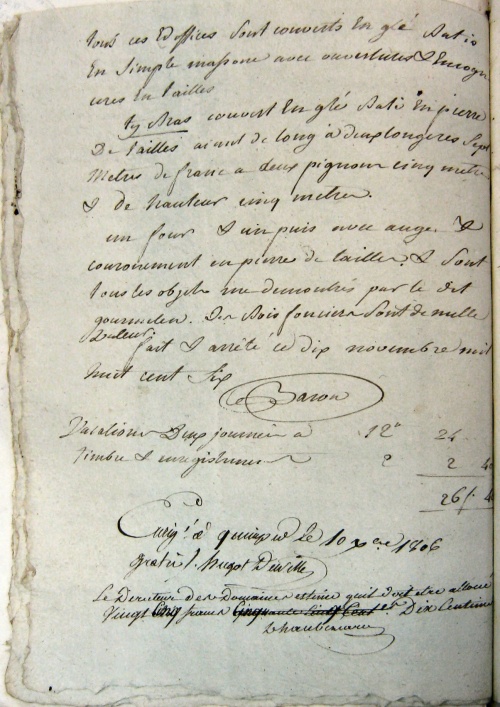 tous ces Edoffices sont couverts En glé Batis
En simple massone avec ouvertures & Encogn
ures En tailles
ty Bras couvert En glé Bati En pierre
De tailles aiant de long a deux longeres sept
metres de franc a deux pignons cinq metre
& de hauteur cinq metres.
un four & un puis avec auge. &
couronement en pierre de tailles. & sont
tous les objets me demontrés par le dit
gourmelen. Des Bois fonciers sont de nulle
Valeur.
fait & arrêté ce dix novembre mil
huit cent six
Le Baron
Vacations Deux journées a 12 24
timbre & enregistrement 2 2 4
26 4
a quimper le 10 1806
gratis
Le Directeur des Domaines estime qu'il doit etre alloué
Vingt Cinq francs et Dix Centimes